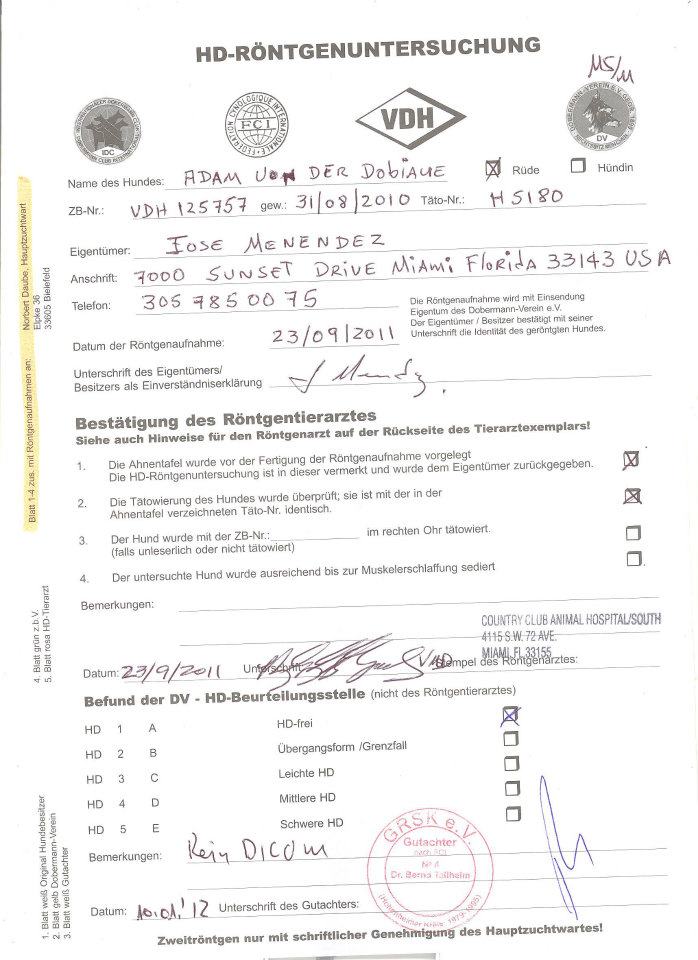 HD-RÖNTGENUNTERSUCHUNG
MS/M
IDC
FEDERATION CYNOLOGIQUE INTERNATIONALE
FCI
VDH
DOBERMANN-VEREIN E.V.
DV
Name des Hundes: ADAM VON DER DOBIAUE Rüde Hündin
ZB-Nr.: VDH 125757 gew.: 31/08/2010 Täto-Nr.: H5180
Eigentümer: JOSE MENENDEZ
Anschrift: 7000 SUNSET DRIVE MIAMI FLORIDA 33143 USA
Telefon: 305 785 00 75
Die Röntgenaufnahme wird mit Einsendung
Eigentum des Dobermann-Verein e.V.
Der Eigentümer / Besitzer bestätigt mit seiner
Unterschrift die Identität des geröntgten Hundes.
Datum der Röntgenaufnahme: 23/09/2011
Unterschrift des Eigentümers/
Besitzers als Einverständniserklärung
Bestätigung des Röntgentierarztes
Siehe auch Hinweise für den Röntgenarzt auf der Rückseite des Tierarztexemplars!
1. Die Ahnentafel wurde vor der Fertigung der Röntgenaufnahme vorgelegt
Die HD-Röntgenuntersuchung ist in dieser vermerkt und wurde dem Eigentümer zurückgegeben.
2. Die Tätowierung des Hundes wurde überprüft; sie ist mit der in der
Ahnentafel verzeichneten Täto-Nr. identisch.
3. Der Hund wurde mit der ZB-Nr.: im rechten Ohr tätowiert.
(falls unleserlich oder nicht tätowiert)
4. Der untersuchte Hund wurde ausreichend bis zur Muskelerschlaffung sediert
Bemerkungen:
COUNTRY CLUB ANIMAL HOSPITAL/SOUTH
4115 S.W. 72 AVE.
MIAMI, FL 33155
Datum: 23/9/2011 Unterschrift VMD Stempel des Röntgenarztes:
Befund der DV - HD-Beurteilungsstelle (nicht des Röntgentierarztes)
HD 1 A HD-frei
HD 2 B Übergangsform /Grenzfall
HD 3 C Leichte HD
HD 4 D Mittlere HD
HD 5 E Schwere HD
Bemerkungen: Kein DICOM
GRSK e.V.
Gutachter
nach FCI
Nº 4
Dr. Bernd Tellhelm
Datum: 10.01.'12 Unterschrift des Gutachters:
Zweitröntgen nur mit schriftlicher Genehmigung des Hauptzuchtwartes!
Blatt 1-4 zus. mit Röntgenaufnahmen an: Norbert Daube, Hauptzuchtwart
Elpke 36
33605 Bielefeld
4. Blatt grün z.b.V.
5. Blatt rosa HD-Tierarzt
1. Blatt weiß Original Hundebesitzer
2. Blatt gelb Dobermann-Verein
3. Blatt weiß Gutachter